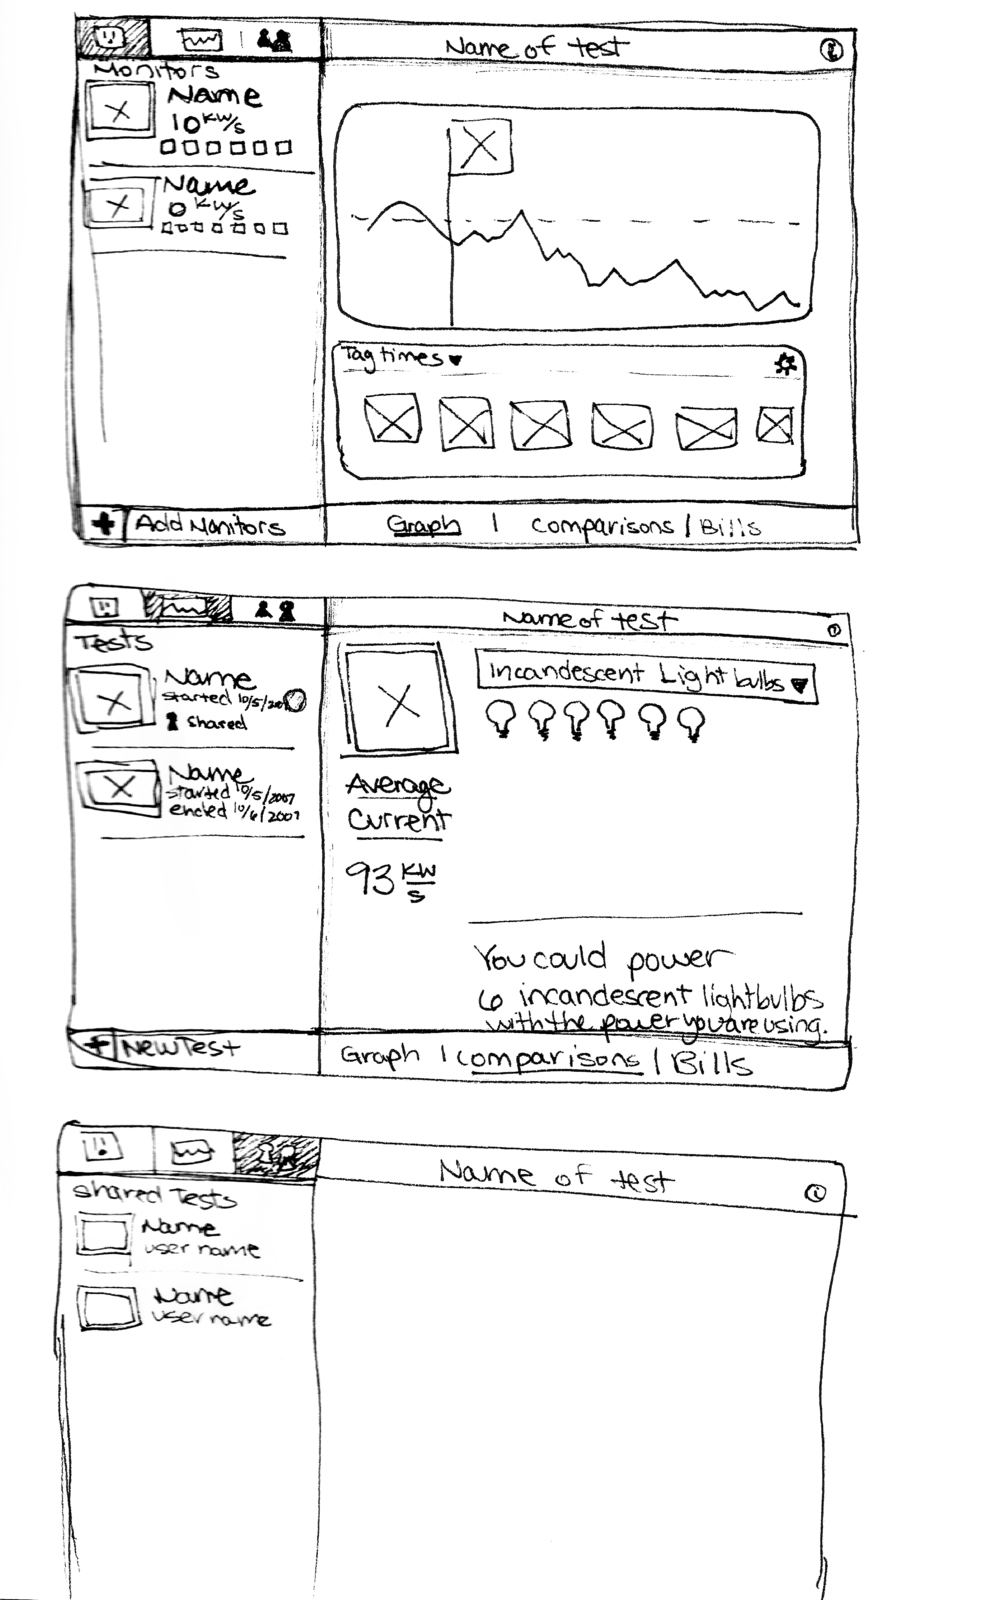 Name of test
i
Monitors
Name
10 KW/s
Name
0 KW/s
Tag times
Add Monitors
Graph | Comparisons / Bills
Name of test
i
Tests
Name
started 10/5/200
shared
Name
started 10/5/2007
ended 10/6/2007
Incandescent Light bulbs
Average
Current
93 KW/s
You could power
6 incandescent lightbulbs
with the power you are using.
New Test
Graph | Comparisons / Bills
Name of test
i
Shared Tests
Name
user name
Name
user name